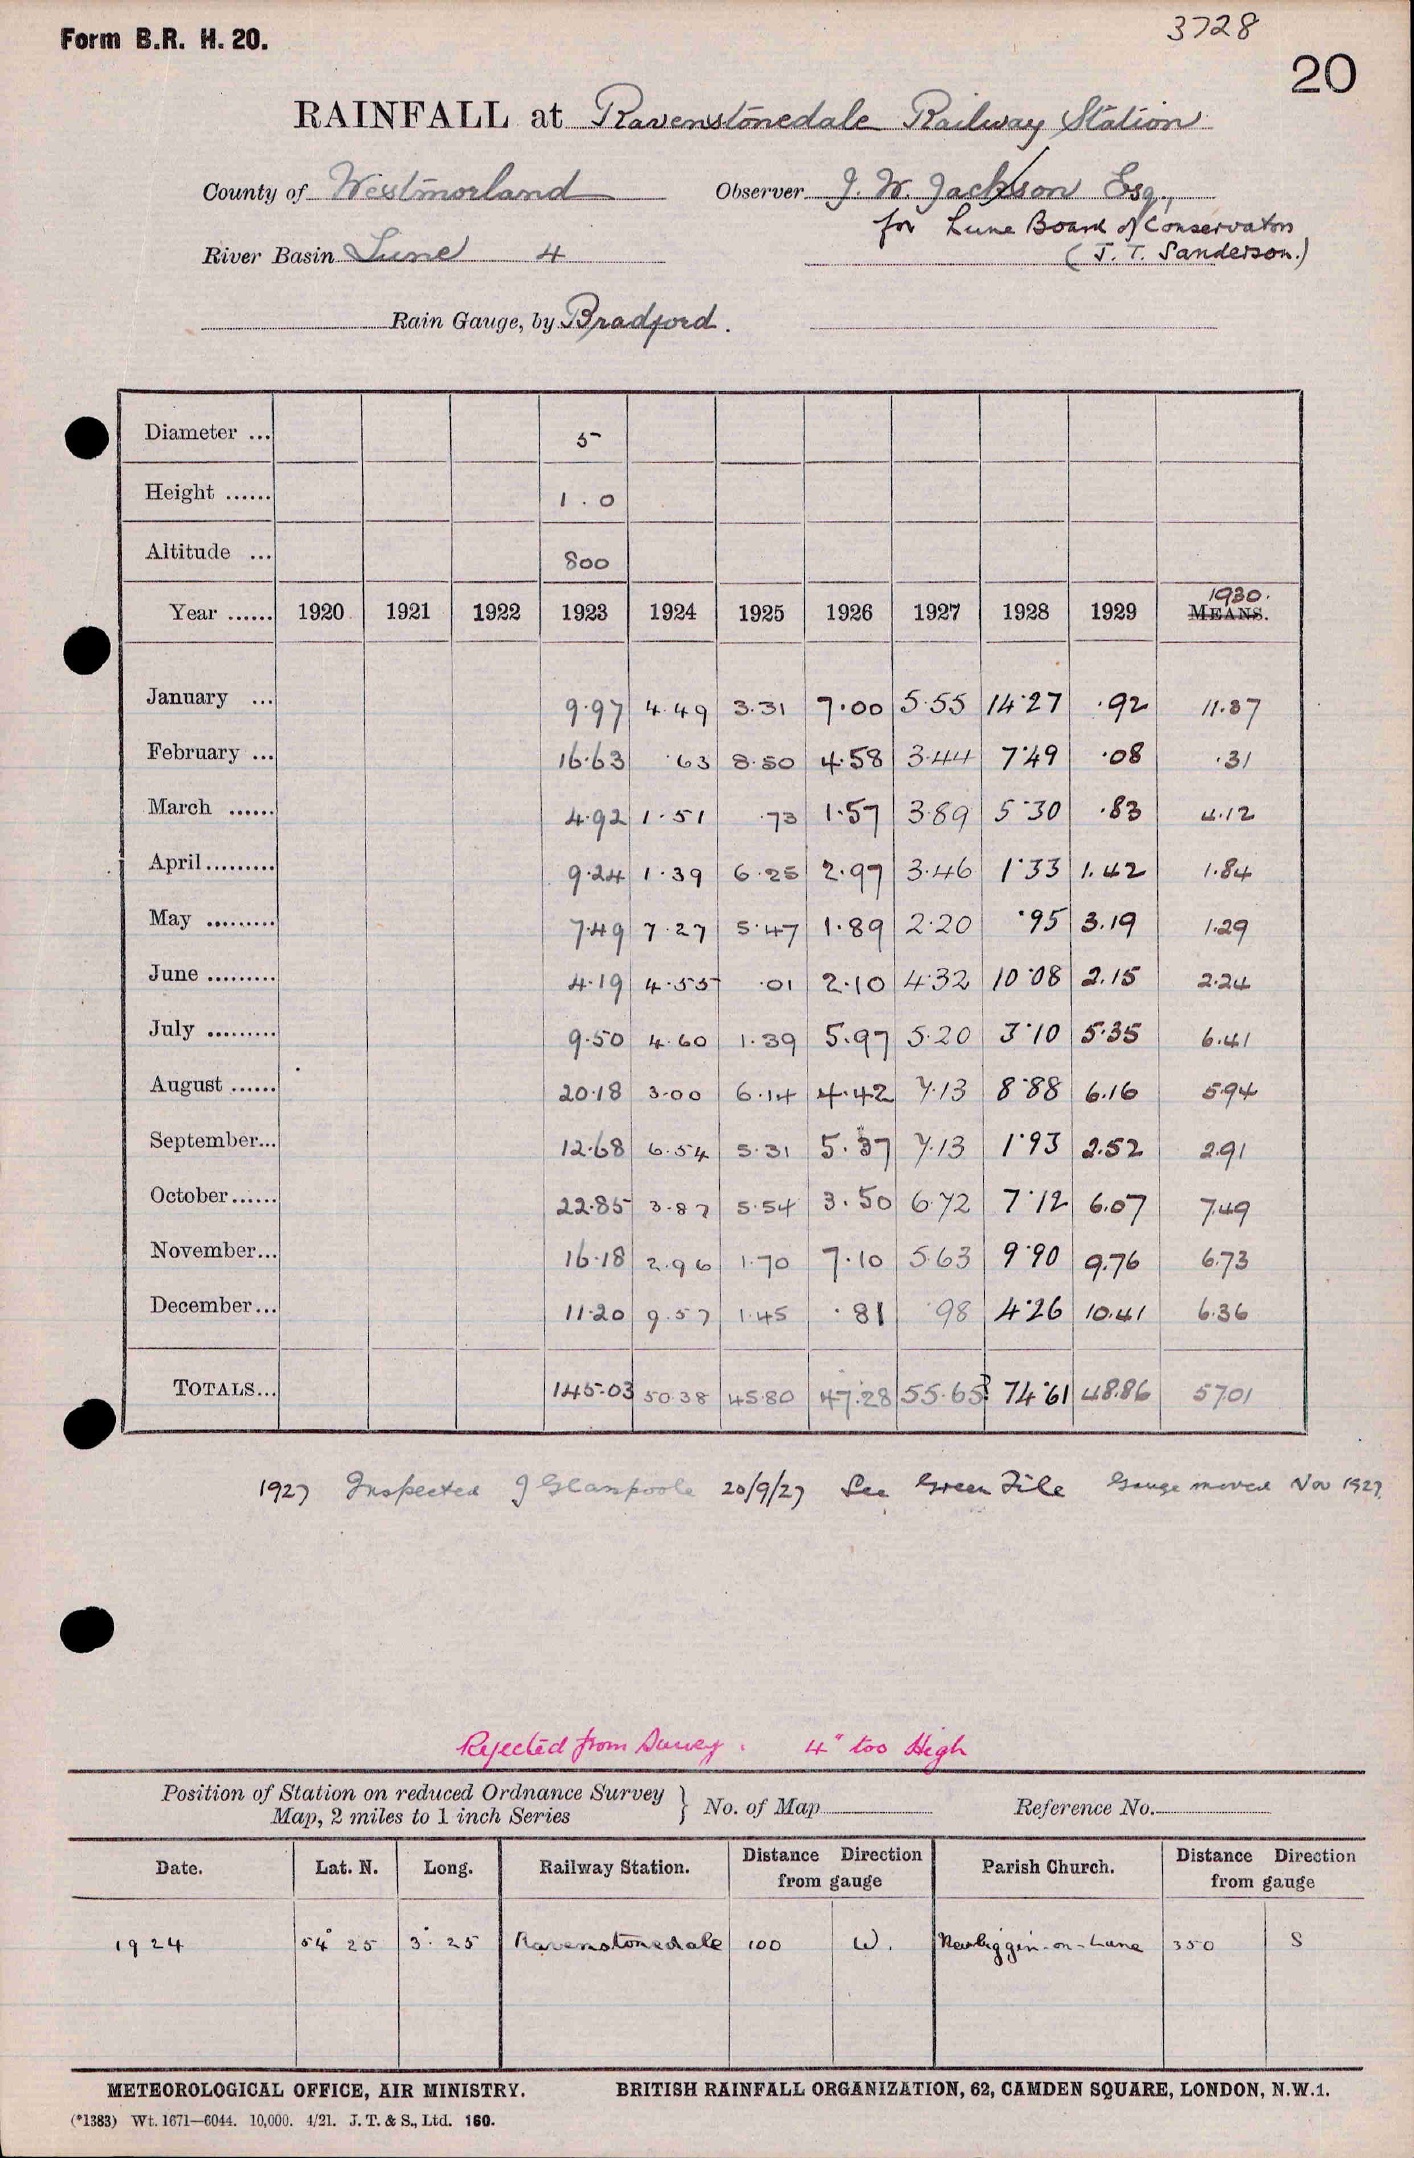 3728
Form B.R. H. 20.
20
RAINFALL at Ravenstonedale Railway Station
County of Westmorland Observer J. W. Jackson Esq.,
for Lune Board of Conservators
River Basin Lune 4 (J. T. Sanderson.)
Rain Gauge, by Bradford.
Diameter ... 5
Height ...... 1.0
Altitude ... 800
1930.
Year ...... 1920 1921 1922 1923 1924 1925 1926 1927 1928 1929 MEANS.
January ... 9.97 4.49 3.31 7.00 5.55 14.27 .92 11.37
February ... 16.63 .63 8.50 4.58 3.44 7.49 .08 .31
March ...... 4.92 1.51 .73 1.57 3.89 5.30 .83 4.12
April ......... 9.24 1.39 6.25 2.97 3.46 1.33 1.42 1.84
May ......... 7.49 7.27 5.47 1.89 2.20 .95 3.19 1.29
June ......... 4.19 4.55 .01 2.10 4.32 10.08 2.15 2.24
July ......... 9.50 4.60 1.39 5.97 5.20 3.10 5.35 6.41
August ...... 20.18 3.00 6.14 4.42 7.13 8.88 6.16 5.94
September... 12.68 6.54 5.31 5.37 7.13 1.93 2.52 2.91
October ...... 22.85 3.87 5.54 3.50 6.72 7.12 6.07 7.49
November... 16.18 2.96 1.70 7.10 5.63 9.90 9.76 6.73
December... 11.20 9.57 1.45 .81 .98 4.26 10.41 6.36
TOTALS... 145.03 50.38 45.80 47.28 55.65? 74.61 48.86 57.01
1927 Inspected J Glasspoole 20/9/27 See Green File Gauge moved Nov 1927.
Rejected from Survey. 4" too High
Position of Station on reduced Ordnance Survey
Map, 2 miles to 1 inch Series } No. of Map Reference No.
Date. Lat. N. Long. Railway Station. Distance Direction from gauge Parish Church. Distance Direction from gauge
1924 54° 25 3° 25 Ravenstonedale 100 W. Newbiggin-on-Lune 350 S
METEOROLOGICAL OFFICE, AIR MINISTRY. BRITISH RAINFALL ORGANIZATION, 62, CAMDEN SQUARE, LONDON, N.W.1.
(*1383) Wt. 1671—6044. 10,000. 4/21. J. T. & S., Ltd. 160.